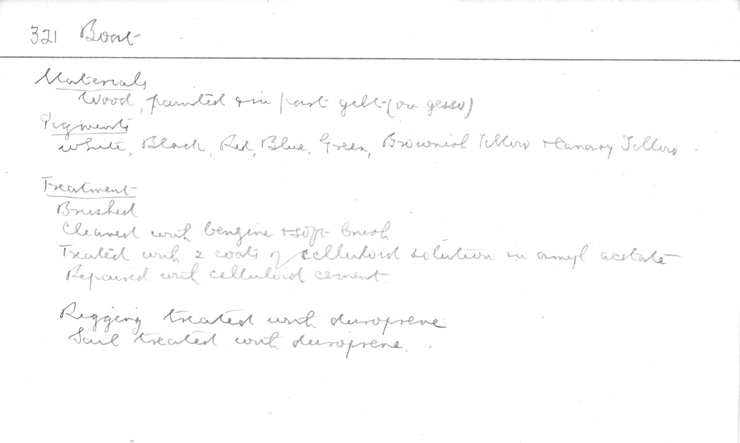 321 Boat
Materials
Wood, painted & in part gilt (on gesso)
Pigments
White, Black, Red, Blue, Green, Brownish Yellow & Canary Yellow.
Treatment
Brushed
Cleaned with benzine & soft brush
Treated with 2 coats of celluloid solution in amyl acetate
Repaired with celluloid cement
Rigging treated with duroprene
Sail treated with duroprene.